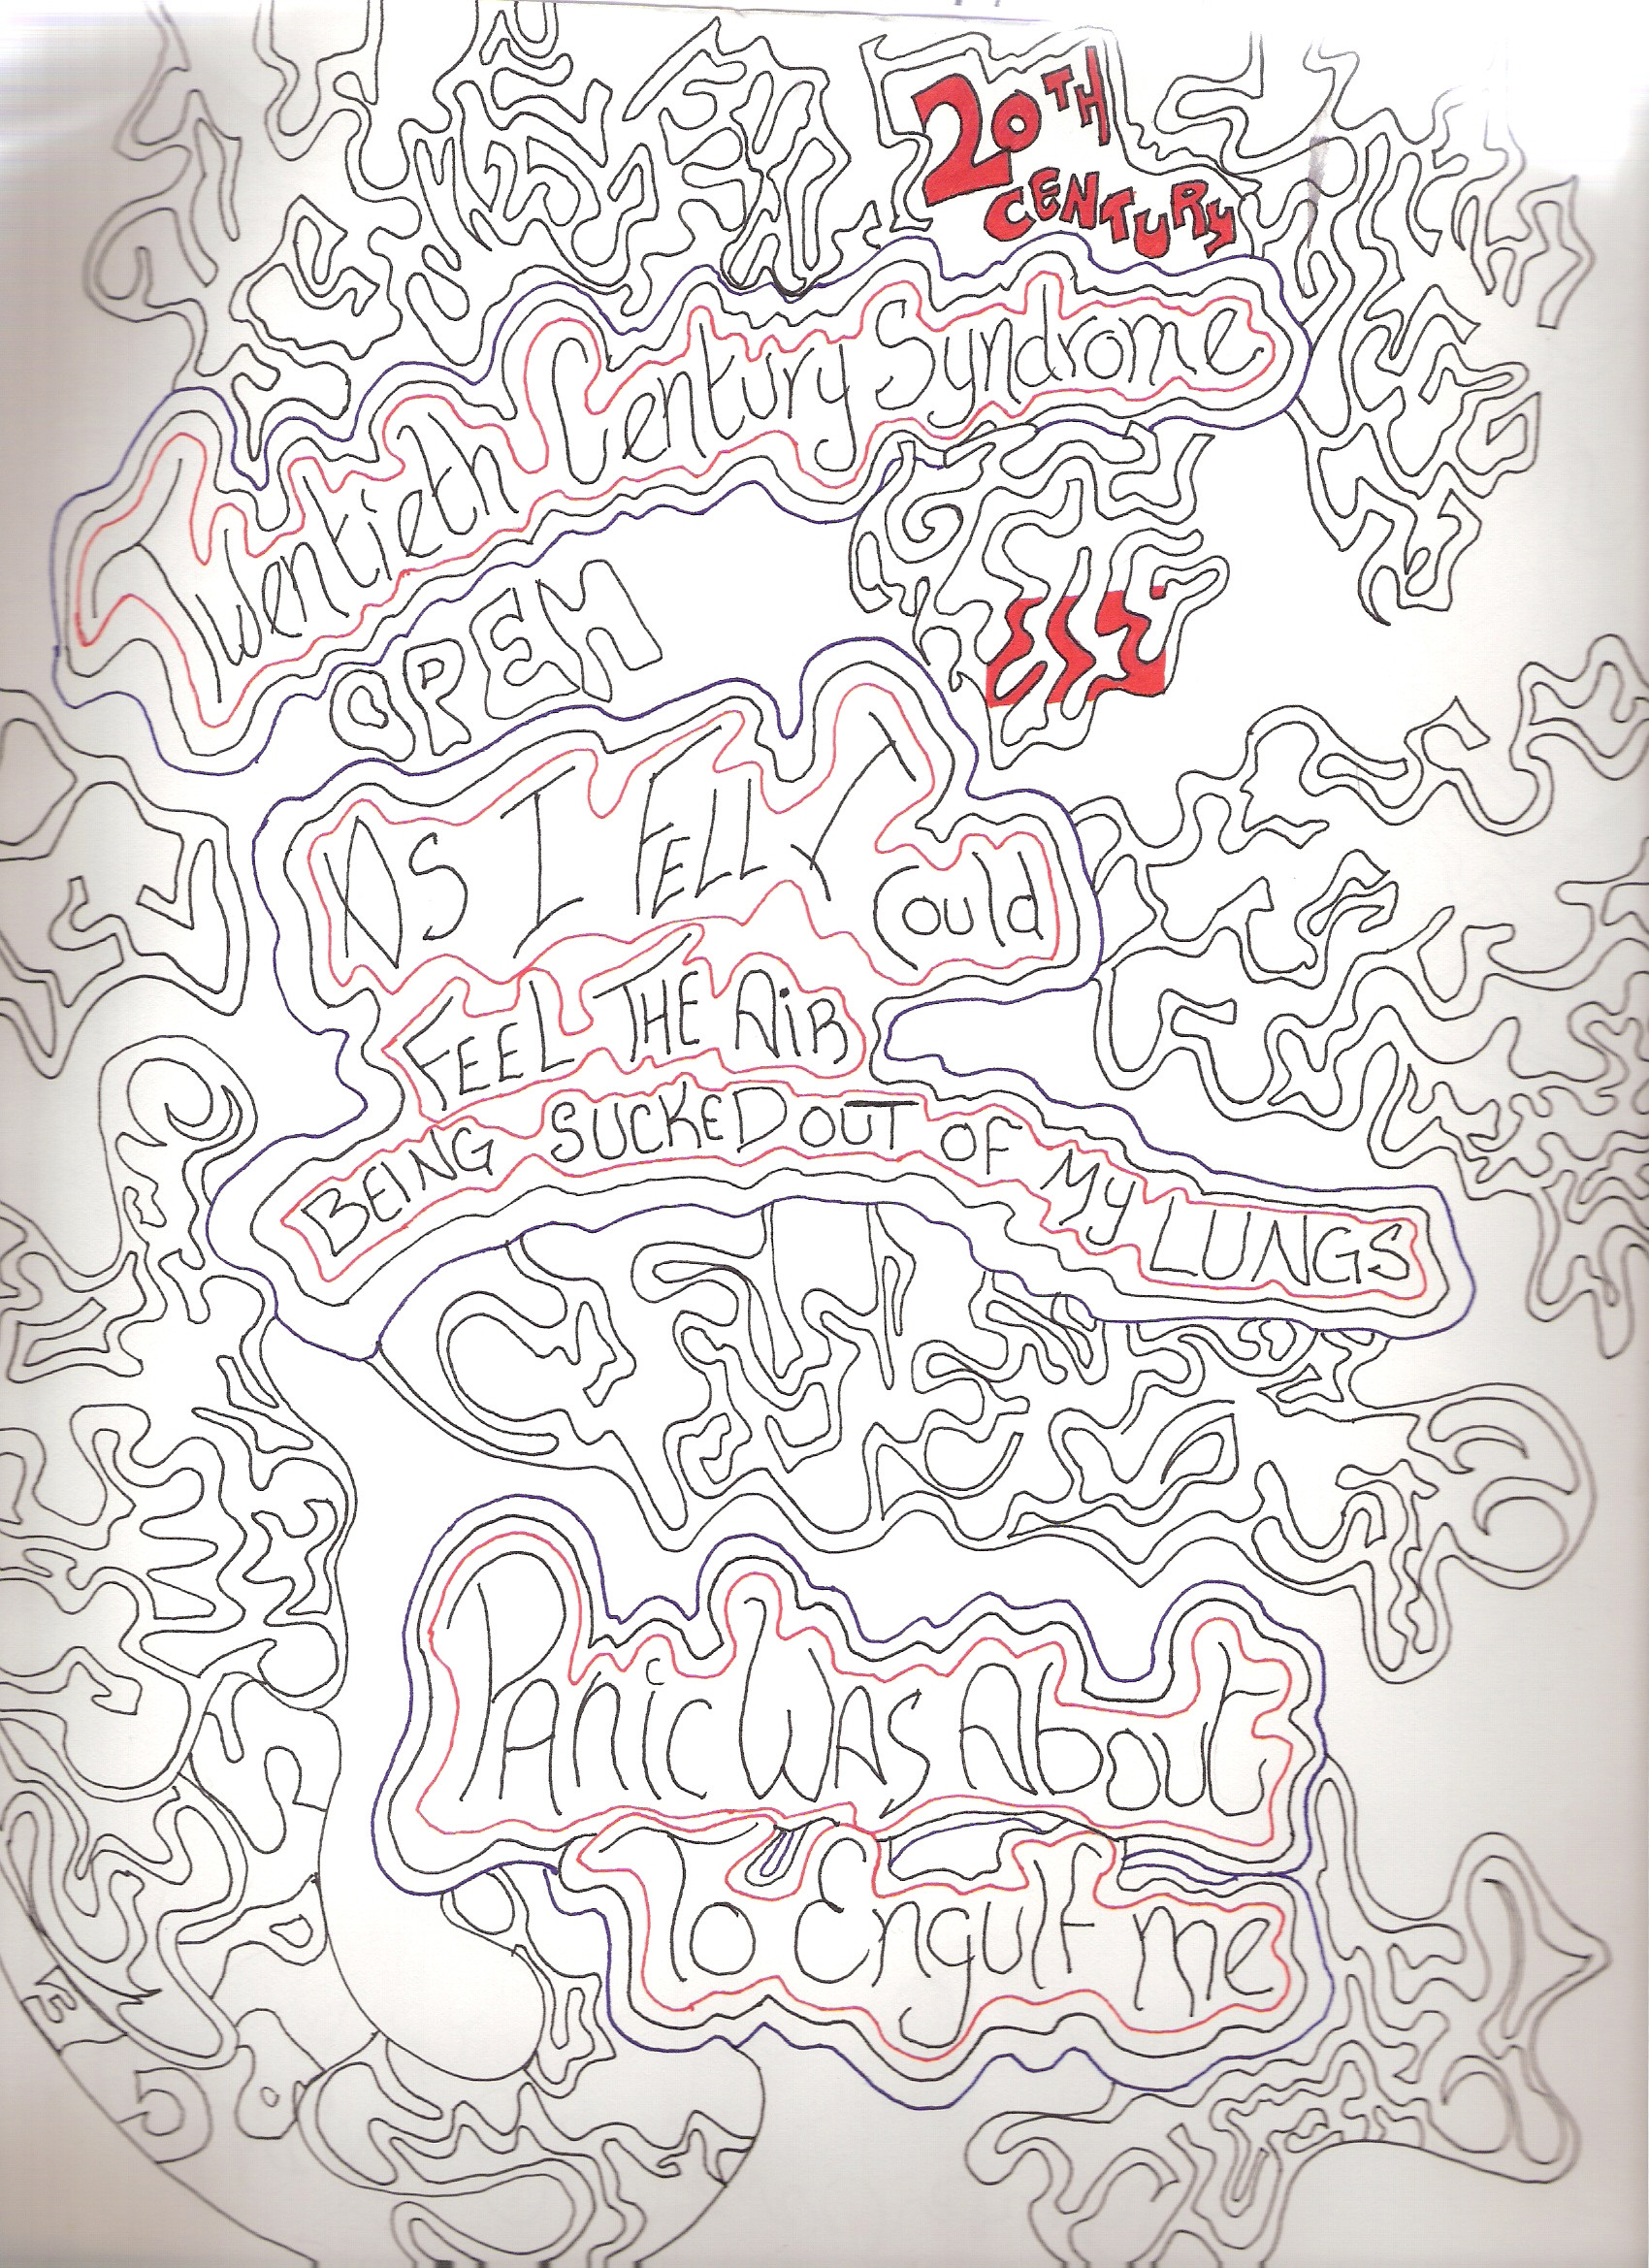 20TH
CENTURY
Twentieth Century Syndrome
OPEN
AS I FELL I
Could
FEEL THE AiR
BEING SUCKED OUT OF MY LUNGS
PAnic WAS About
To Engulf me